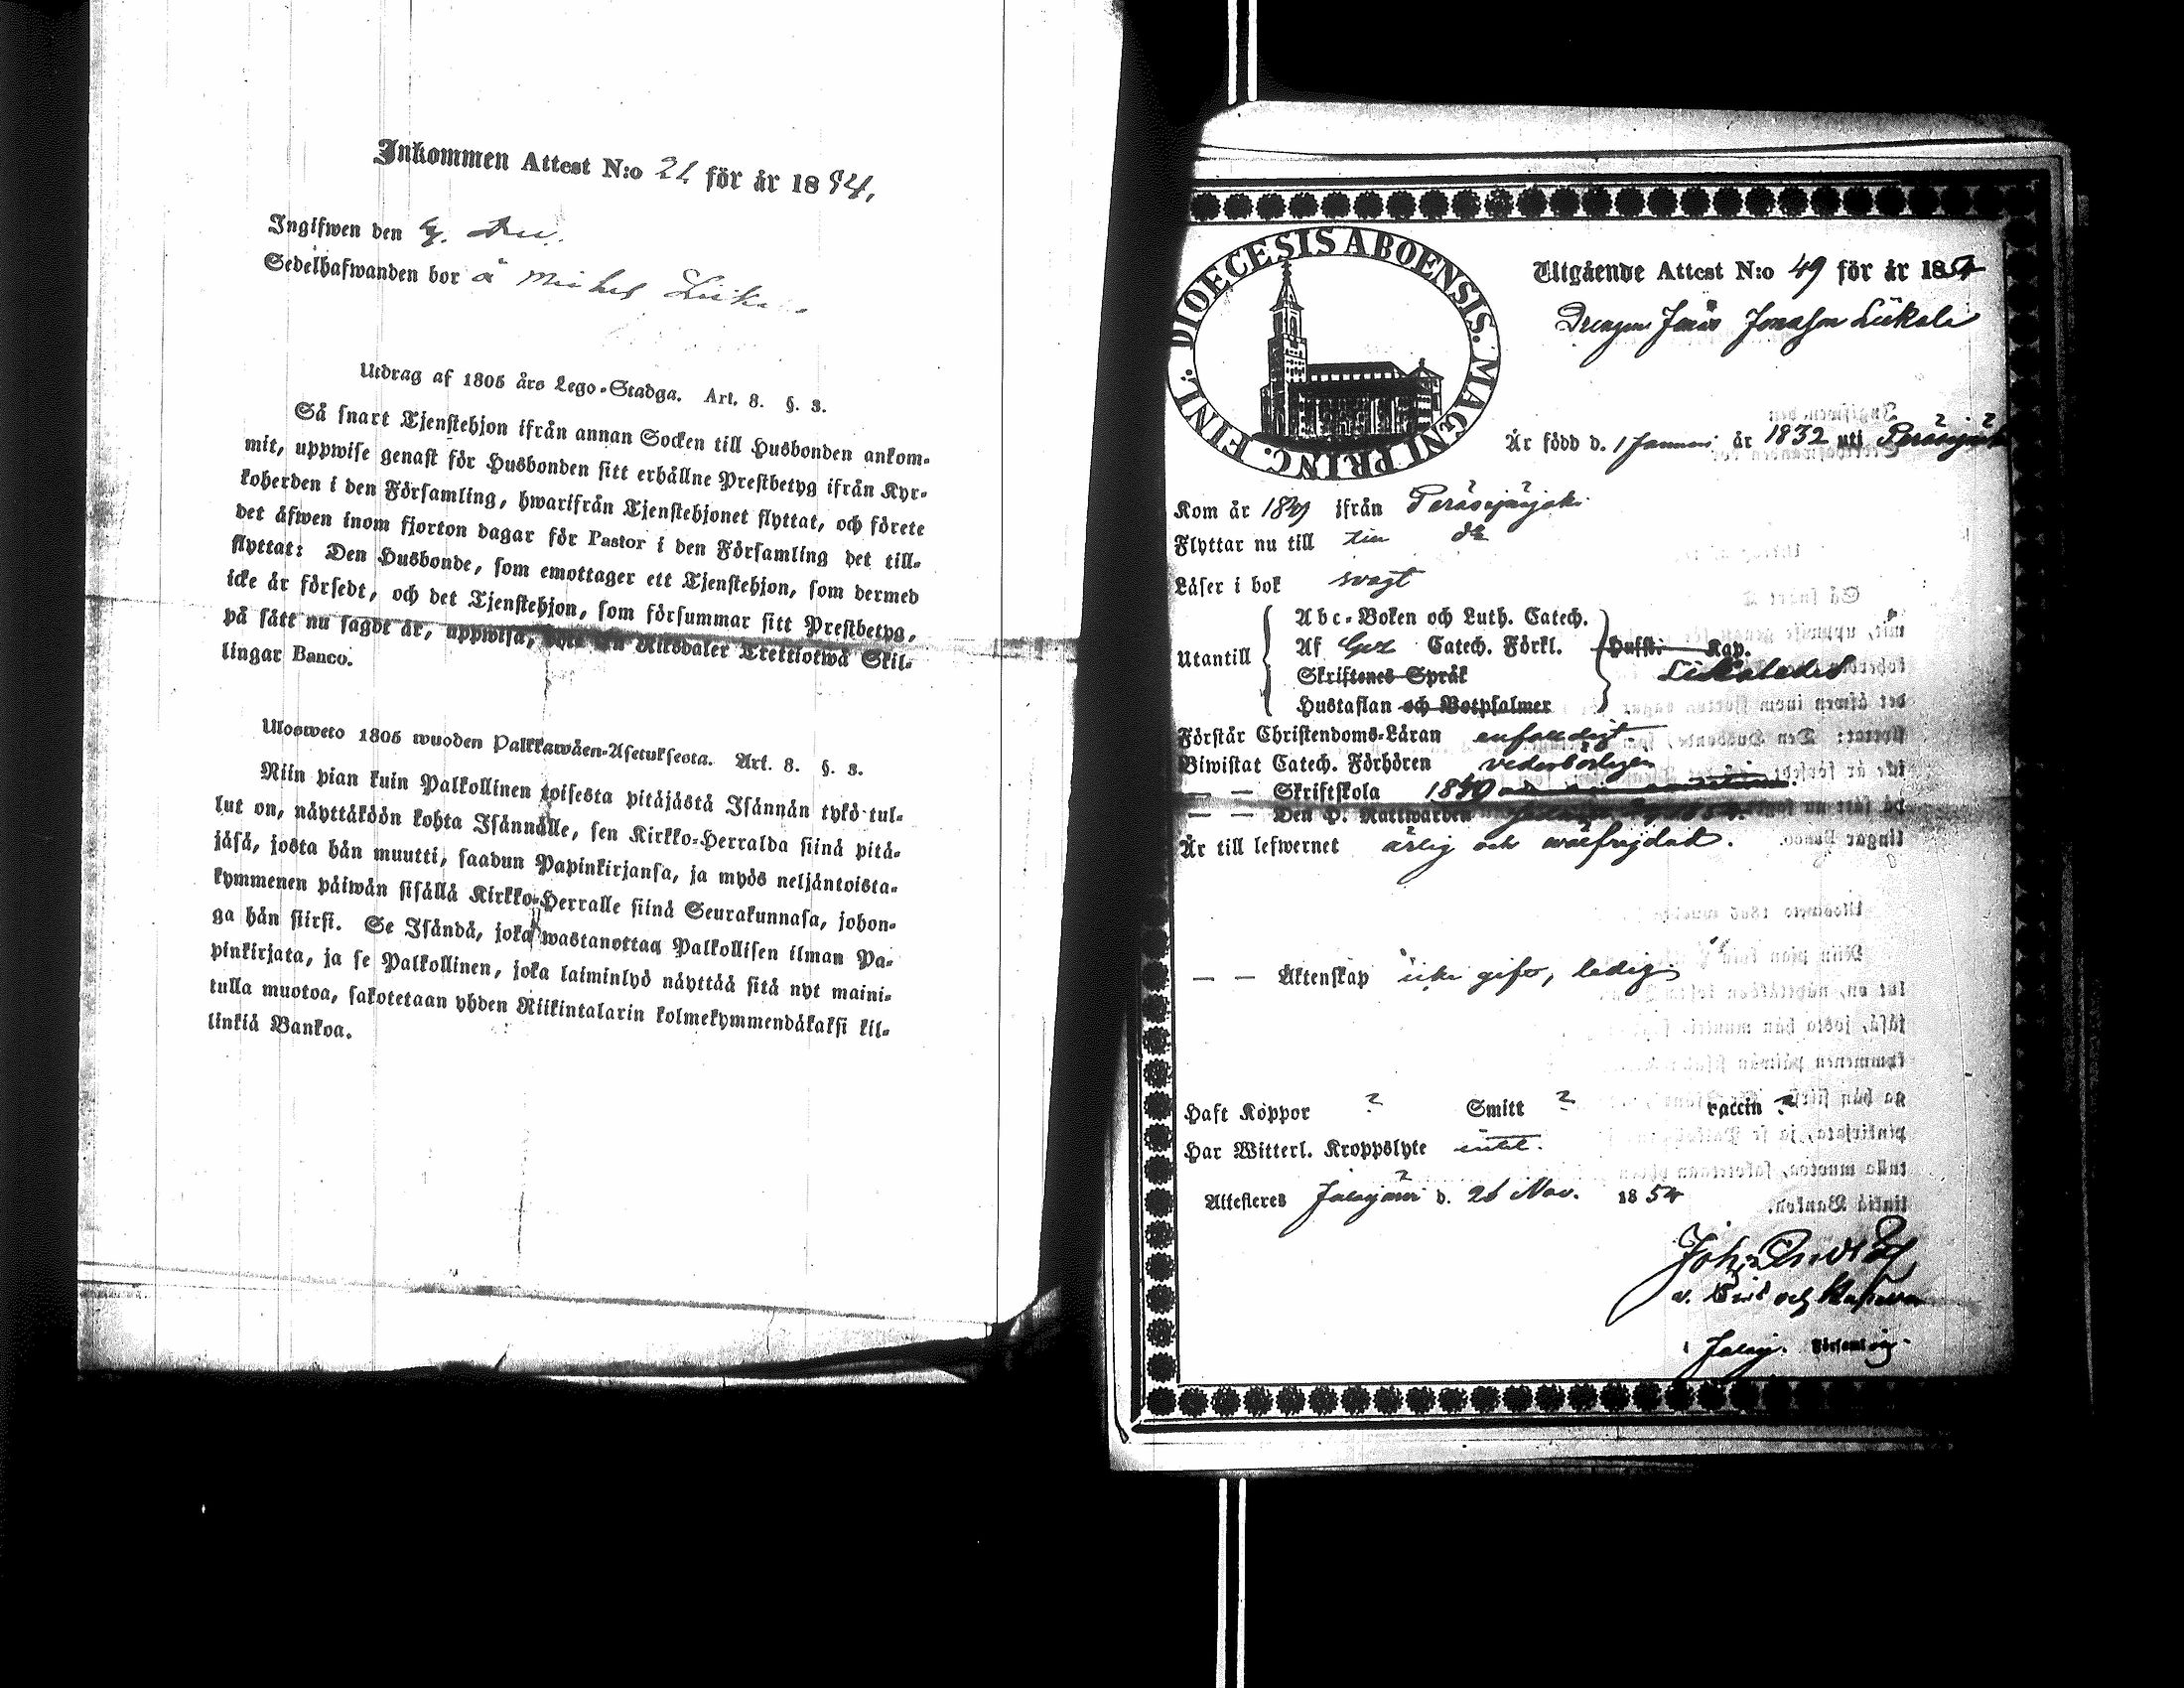 Inkommen Attest N:o 21 för år 1854.
Ingifwen den Dec.
Sedelhafwanden bor å Mickels
Utdrag af 1805 års Lego-Stadga. Art. 8. §. 3.
Så snart Tjenstehjon ifrån annan Socken till Husbonden ankom-
mit, uppwise genast för Husbonden sitt erhållne Prestbetyg ifrån Kyr-
koherden i den Församling, hwarifrån Tjenstehjonet flyttat, och förete
det äfwen inom fjorton dagar för Pastor i den Församling det till-
flyttat: Den Husbonde, som emottager ett Tjenstehjon, som dermed
icke är försedt, och det Tjenstehjon, som försummar sitt Prestbetyg,
på sätt nu sagdt är, uppwisa, Riksdaler Trettiotwå Skil-
lingar Banco.
Ulosweto 1805 wuoden Palkkawäen-Asetuksesta. Art. 8. §. 3.
Niin pian kuin Palkollinen toisesta pitäjästä Isännän tykö tul-
lut on, näyttäköön kohta Isännälle, sen Kirkko-Herralda siinä pitä-
jäsä, josta hän muutti, saadun Papinkirjansa, ja myös neljäntoista-
kymmenen päiwän sisällä Kirkko-Herralle siinä Seurakunnasa, johon-
ga hän siirsi. Se Isändä, joka wastanottaa Palkollisen ilman Pa-
pinkirjata, ja se Palkollinen, joka laiminlyö näyttää sitä nyt maini-
tulla muotoa, sakotetaan yhden Riikintalarin kolmekymmendäkaksi kil-
linkiä Bankoa.
DIOECESIS ABOENSIS. MAGNI PRINC. FINL.
Utgående Attest N:o 49 för år 1854
Drengen Jonas Jonasson
Är född d. 1 Januari år 1832 uti Peräseinäjoki
Kom år ifrån Peräseinäjoki
Flyttar nu till do
Läser i bok svagt
Utantill
Abc-Boken och Luth. Catech.
Af Catech. Förkl.
Skriftenes Språk
Hustaflan och Botpsalmer
Hufst: Kap.
Förstår Christendoms-Läran enfaldigt
Biwistat Catech. Förhören vederbörligen
— — Skriftskola
— — Den H. Nattwarden
Är till lefwernet ärlig och wälfrejdad.
— — Äktenskap icke gift, ledig
Haft Koppor ? Smitt ? vaccin ?
Har Witterl. Kroppslyte intet.
Attesteras Jalasjärvi d. 26 Nov. 1854
i Jalasj. Församling